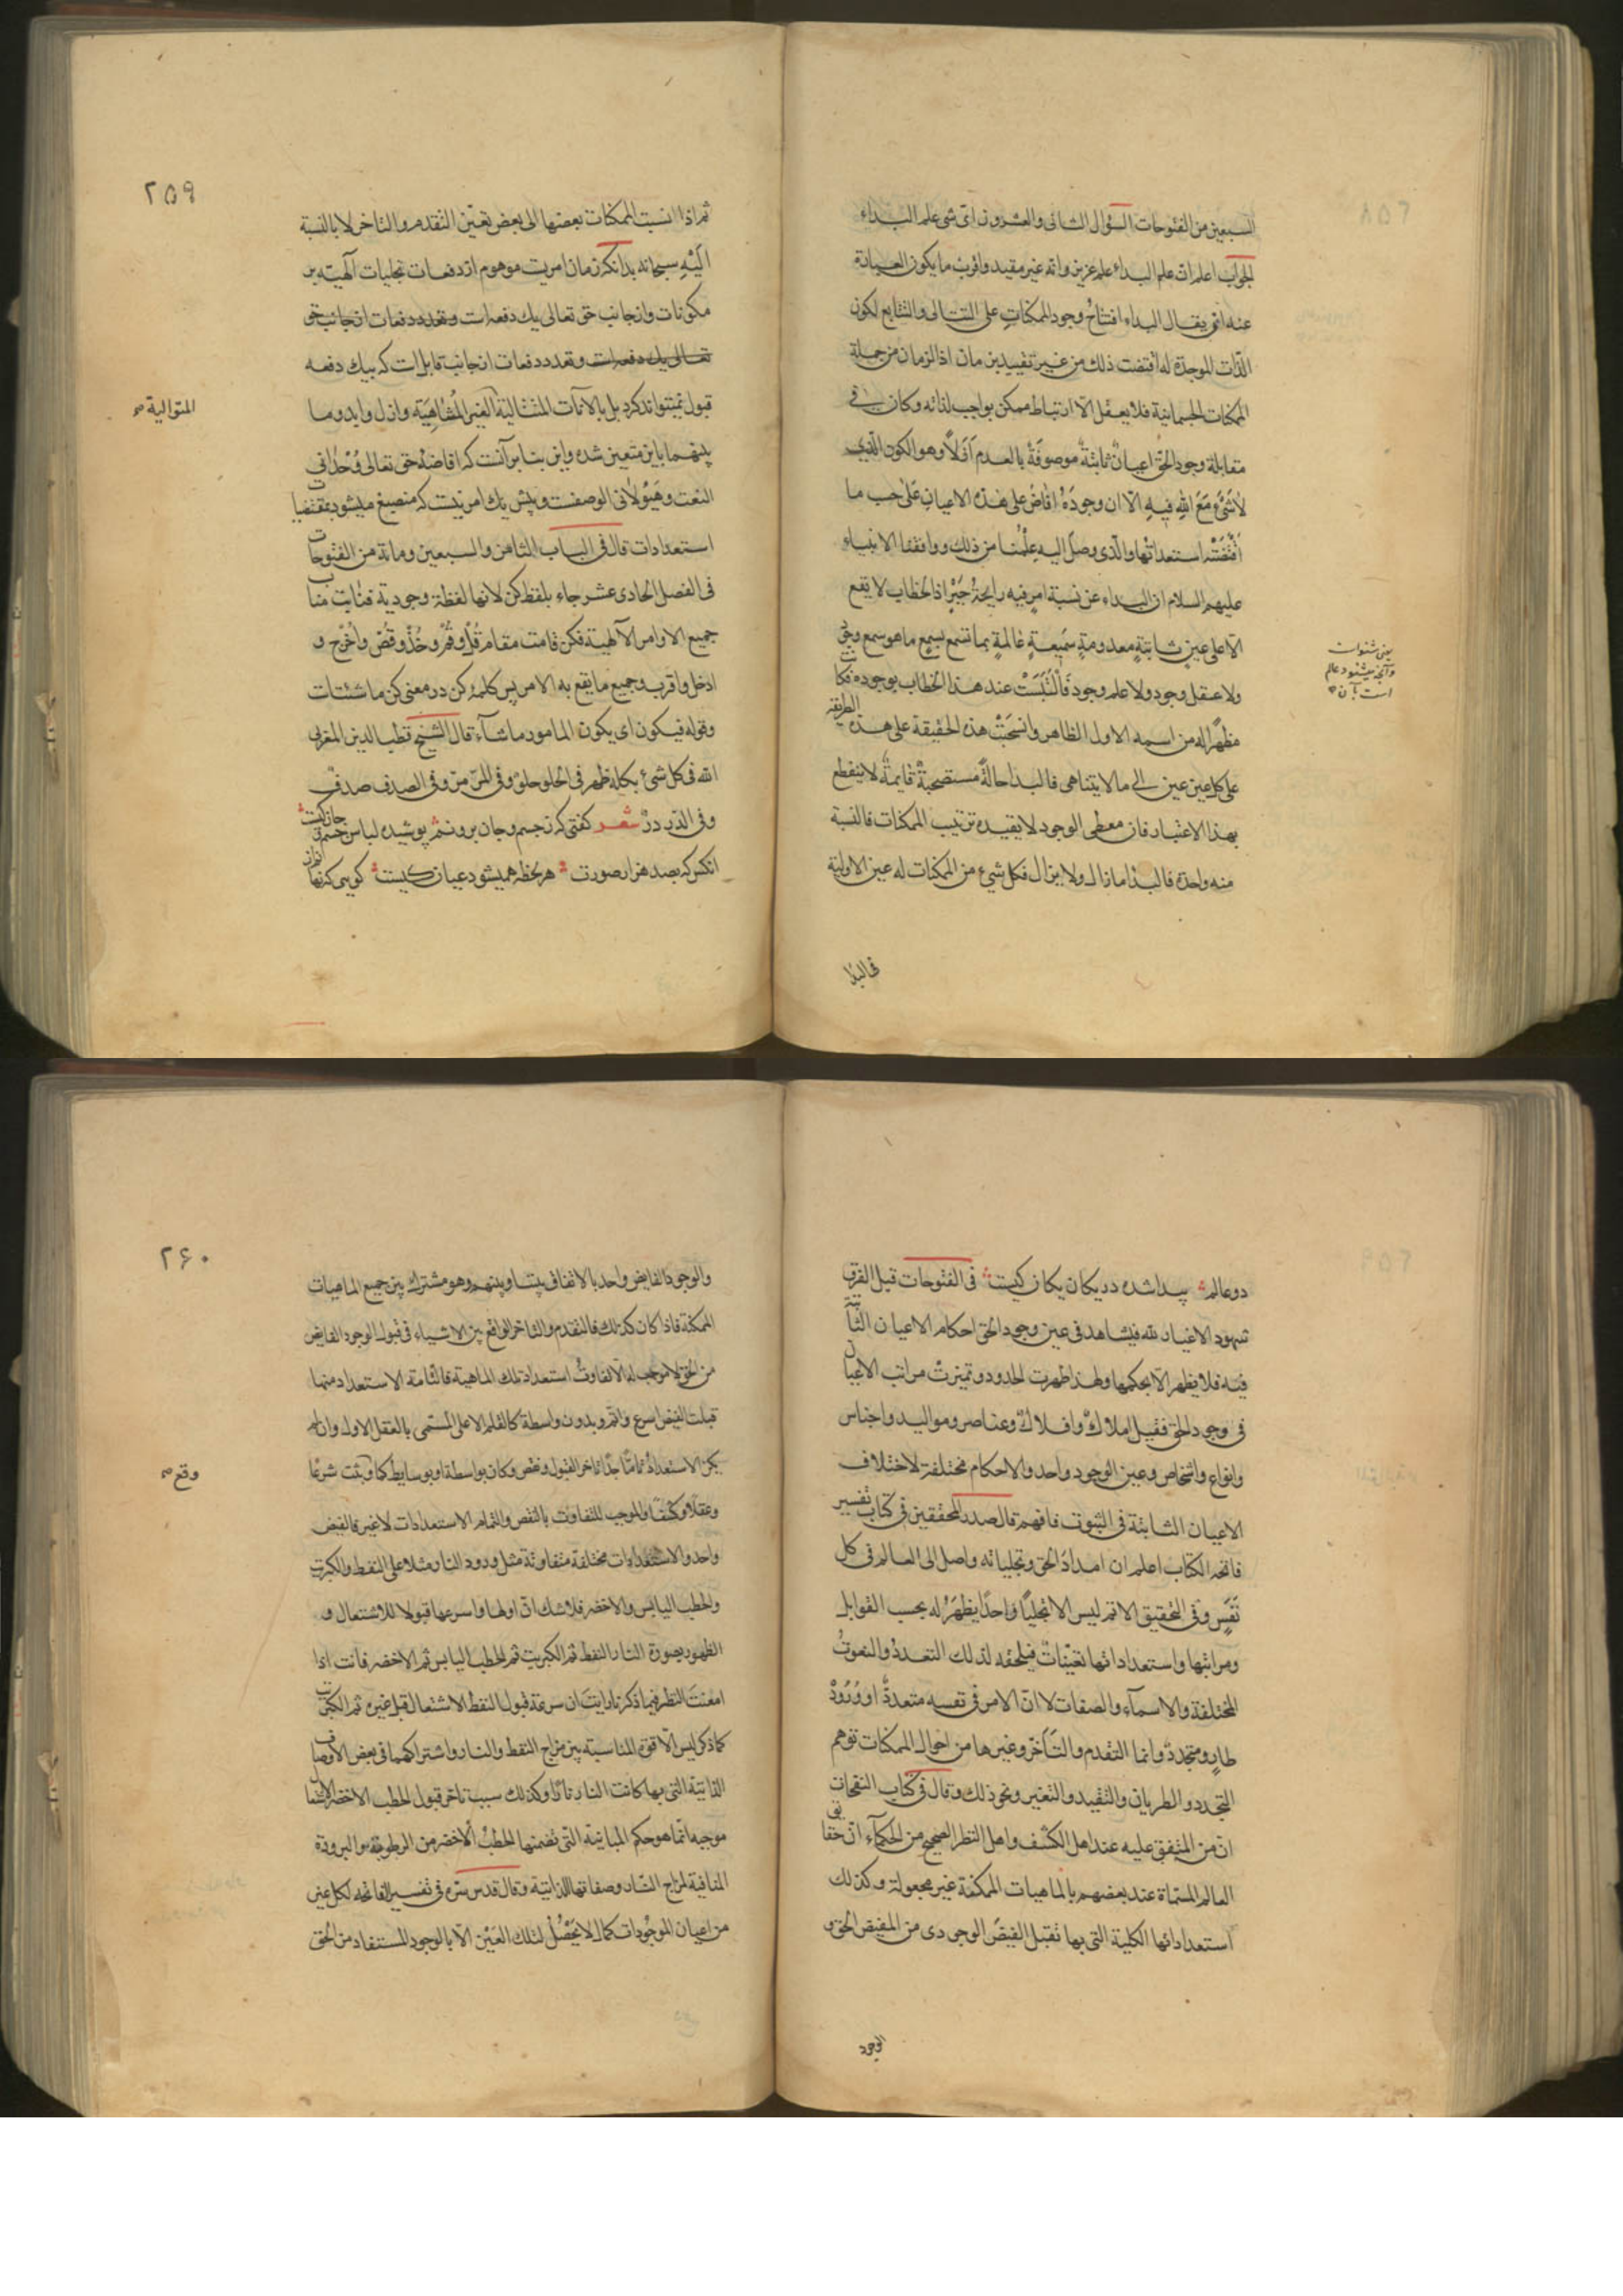 السبعين من الفتوحات السؤال الثانى والعشرون اى شى علم البداء
الجواب اعلم ان علم البداء علم عزيز وانه غير مقيد واقرب ما يكون العبارة
عنه ان يقال البداء افتتاح وجود الممكنات على التتالى والتتابع لكون
الذات الموجدة له اقتضت ذلك من غير تقييد بزمان اذ الزمان من جملة
الممكنات الجسمانية فلا يعقل الا ارتباط ممكن بواجب لذاته وكان فى
مقابلة وجود الحق اعيان ثابتة موصوفة بالعدم ازلا وهو الكون الذى
لا شىء مع الله فيه الا ان وجوده افاض على هذه الاعيان على حسب ما
اقتضته استعداداتها والذى وصل اليه علمنا من ذلك ووافقنا الانبياء
عليهم السلام ان البداء عن نسبة امر فيه رايحة جبر اذ الخطاب لا يقع
الا على عين ثابتة معدومة سميعة عالمة بما تسمع بسمع ما هو سمع وجود
ولا عقل وجود ولا علم وجود فالتبست عند هذا الخطاب بوجوده فكانت
مظهرا له من اسمه الاول الظاهر وانسحبت هذه الحقيقة على هذه الطريقه
على كل عين عين الى ما لا يتناهى فالبدا حالة مستصحبة قايمة لا ينقطع
بهذا الاعتبار فان معطى الوجود لا يقيده ترتيب الممكنات فالنسبة
منه واحدة فالبدا ما زال ولا يزال فكل شىء من الممكنات له عين الاولية
يعنى شنوات
وآنچه ميشنود عالم
است بآن
فى البدا
٢٥٩
ثم اذا انسبت الممكنات بعضها الى بعض تعين التقدم والتاخر لا بالنسبة
اليه سبحانه بدانكه زمان امريت موهوم از دفعات تجليات آلهيه بر
مكونات وازجانب حق تعالى يك دفعه است وتعدد دفعات ازجانب حق
تعالى يك دفعه است وتعدد دفعات ازجانب قابل است كه بيك دفعه
قبول نميتواند كرد بل بالآنات المتتالية الغير المتناهية وازل وابد وما
بينهما باين متعين شده واين بنابر آنست كه افاضه حق تعالى وحدانى
النعت وهيولانى الوصفست وبيش يك امر نيست كه منصبغ ميشود بمقتضيات
استعدادات قال فى الباب الثامن والسبعين ومائة من الفتوحات
فى الفصل الحادى عشر جاء بلفظ كن لانها لفظة وجودية فنابت مناب
جميع الاوامر الآلهية فكن قامت مقام قل وقم وخذ وقص واخرج و
ادخل واقرب وجميع ما يقع به الامر پس كلمه كن در معنى كن ما شئت است
وقوله فيكون اى يكون المامور ما شآء قال الشيخ قطب الدين المغربى
الله فى كل شئ بكله ظهر فى الحلو حلو وفى المر مر وفى الصدف صدف
وفى الدر در شعر گفتى كه ز جسم وجان برونم پوشيده لباس جسم و جان كيست
انكس كه بصد هزار صورت هر لحظه هميشود عيان كيست گويى كه نهانم از
المتوالية صح
دو عالم پيدا شده در يكان يكان كيست فى الفتوحات قبل الفرق
شهود الاعيان لله فيشاهد فى عين وجود الحق احكام الاعيان الثابتة
فيه فلا يظهر الا بحكمها ولهذا ظهرت الحدود وتميزت مراتب الاعيان
فى وجود الحق فقيل املاك وافلاك وعناصر ومواليد واجناس
وانواع واشخاص وعين الوجود واحد والاحكام مختلفة لاختلاف
الاعيان الثابتة فى الثبوت فافهم قال صدر المحققين فى كتاب تفسير
فاتحه الكتاب اعلم ان امداد الحق وتجلياته واصل الى العالم فى كل
نفس وفى التحقيق الاتم ليس الا تجليا واحدا يظهر له بحسب القوابل
ومراتبها واستعداداتها تعينات فيلحقه لذلك التعدد والنعوت
المختلفة والاسماء والصفات لا ان الامر فى نفسه متعدد او ورود
طار ومتجدد وانما التقدم والتاخر وغيرها من احوال الممكنات توهم
التجدد والطريان والتقييد والتغير ونحو ذلك وقال فى كتاب النفحات
ان من المتفق عليه عند اهل الكشف واهل النظر الصحيح من الحكماء ان حقايق
العالم المسماة عند بعضهم بالماهيات الممكنة غير مجعولة وكذلك
استعداداتها الكلية التى بها تقبل الفيض الوجودى من المفيض الحق و
الوجود
٢۶٠
والوجود الفايض واحد بالاتفاق بيننا وبينهم وهو مشترك بين جميع الماهيات
الممكنة فاذا كان كذلك فالتقدم والتاخر الواقع بين الاشياء فى قبول الوجود الفايض
من الحق لا موجب له الا تفاوت استعداد تلك الماهية فالتامة الاستعداد منها
قبلت الفيض اسرع واتم وبدون واسطة كالقلم الاعلى المسمى بالعقل الاول وان لم
يكن الاستعداد تاما جدا تاخر القبول ونقص وكان بواسطة او بوسايط كما وثبت شرعا
وعقلا وكشفا والموجب للتفاوت بالنقص والتمام الاستعدادات لا غير فالفيض
واحد والاستعدادات مختلفة متفاوتة مثل ورود النار مثلا على النفط والكبريت
والحطب اليابس والاخضر فلا شك ان اولها واسرعها قبولا للاشتعال و
الظهور بصورة النار النفط ثم الكبريت ثم الحطب اليابس ثم الاخضر فانت اذا
امعنت النظر فيما ذكرنا رايت ان سرعة قبول النفط الاشتعال قبل غيره ثم الكبريت
كما ذكر ليس الا قوة المناسبة بين مزاج النفط والنار واشتراكهما فى بعض الاوصاف
الذاتية التى بها كانت النار نارا وكذلك سبب تاخر قبول الحطب الاخضر الاشتعال
موجبه انما هو حكم المباينة التى تضمنها الحطب الاخضر من الرطوبة والبرودة
المنافية لمزاج النار وصفاتها الذاتية وقال قدس سره فى تفسير الفاتحه لكل عين
من اعيان الموجودات كمال لا يحصل لتلك العين الا بالوجود المستفاد من الحق
وقع صح